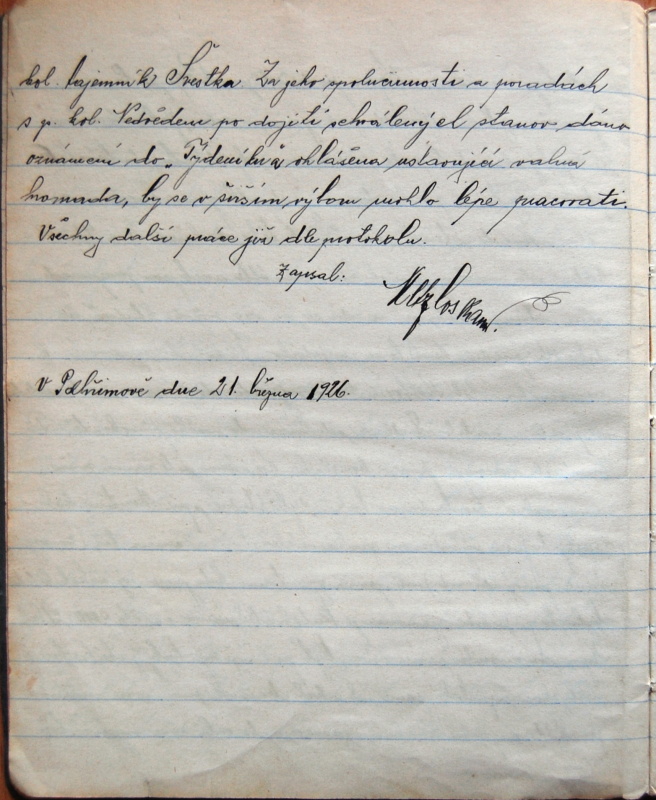 kol. tajemník Švestka. Za jeho spolučinnosti a poradách
s p. kol. Nedvědem po dojití schválených stanov dáno
oznámení do „Týdeníku a ohlášena ustavující valná
hromada, by se v širším výboru mohlo lépe pracovati.
Všechny další práce již dle protokolu.
Zapsal:
V Pelhřimově dne 21. března 1926.